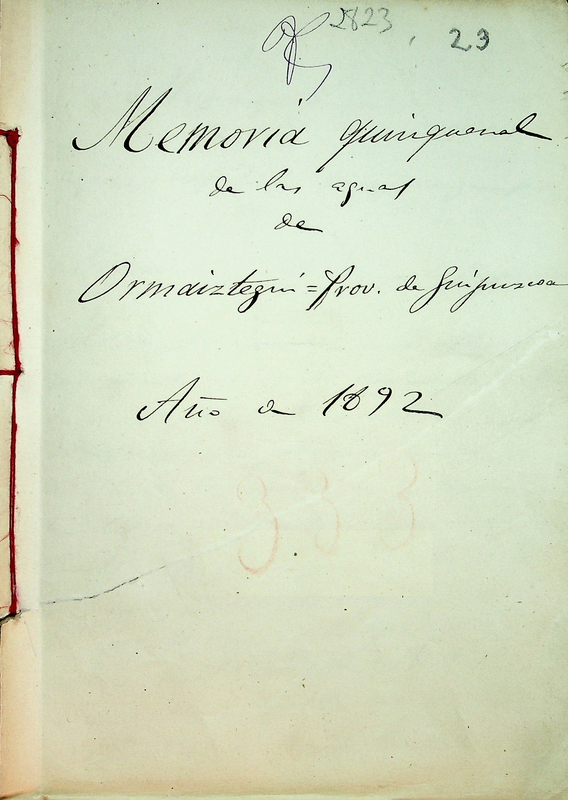 2823
29
Memoria quinquenal
de las aguas
de
Ormaiztegui = Prov. de Guipuzcoa
Año de 1892
333